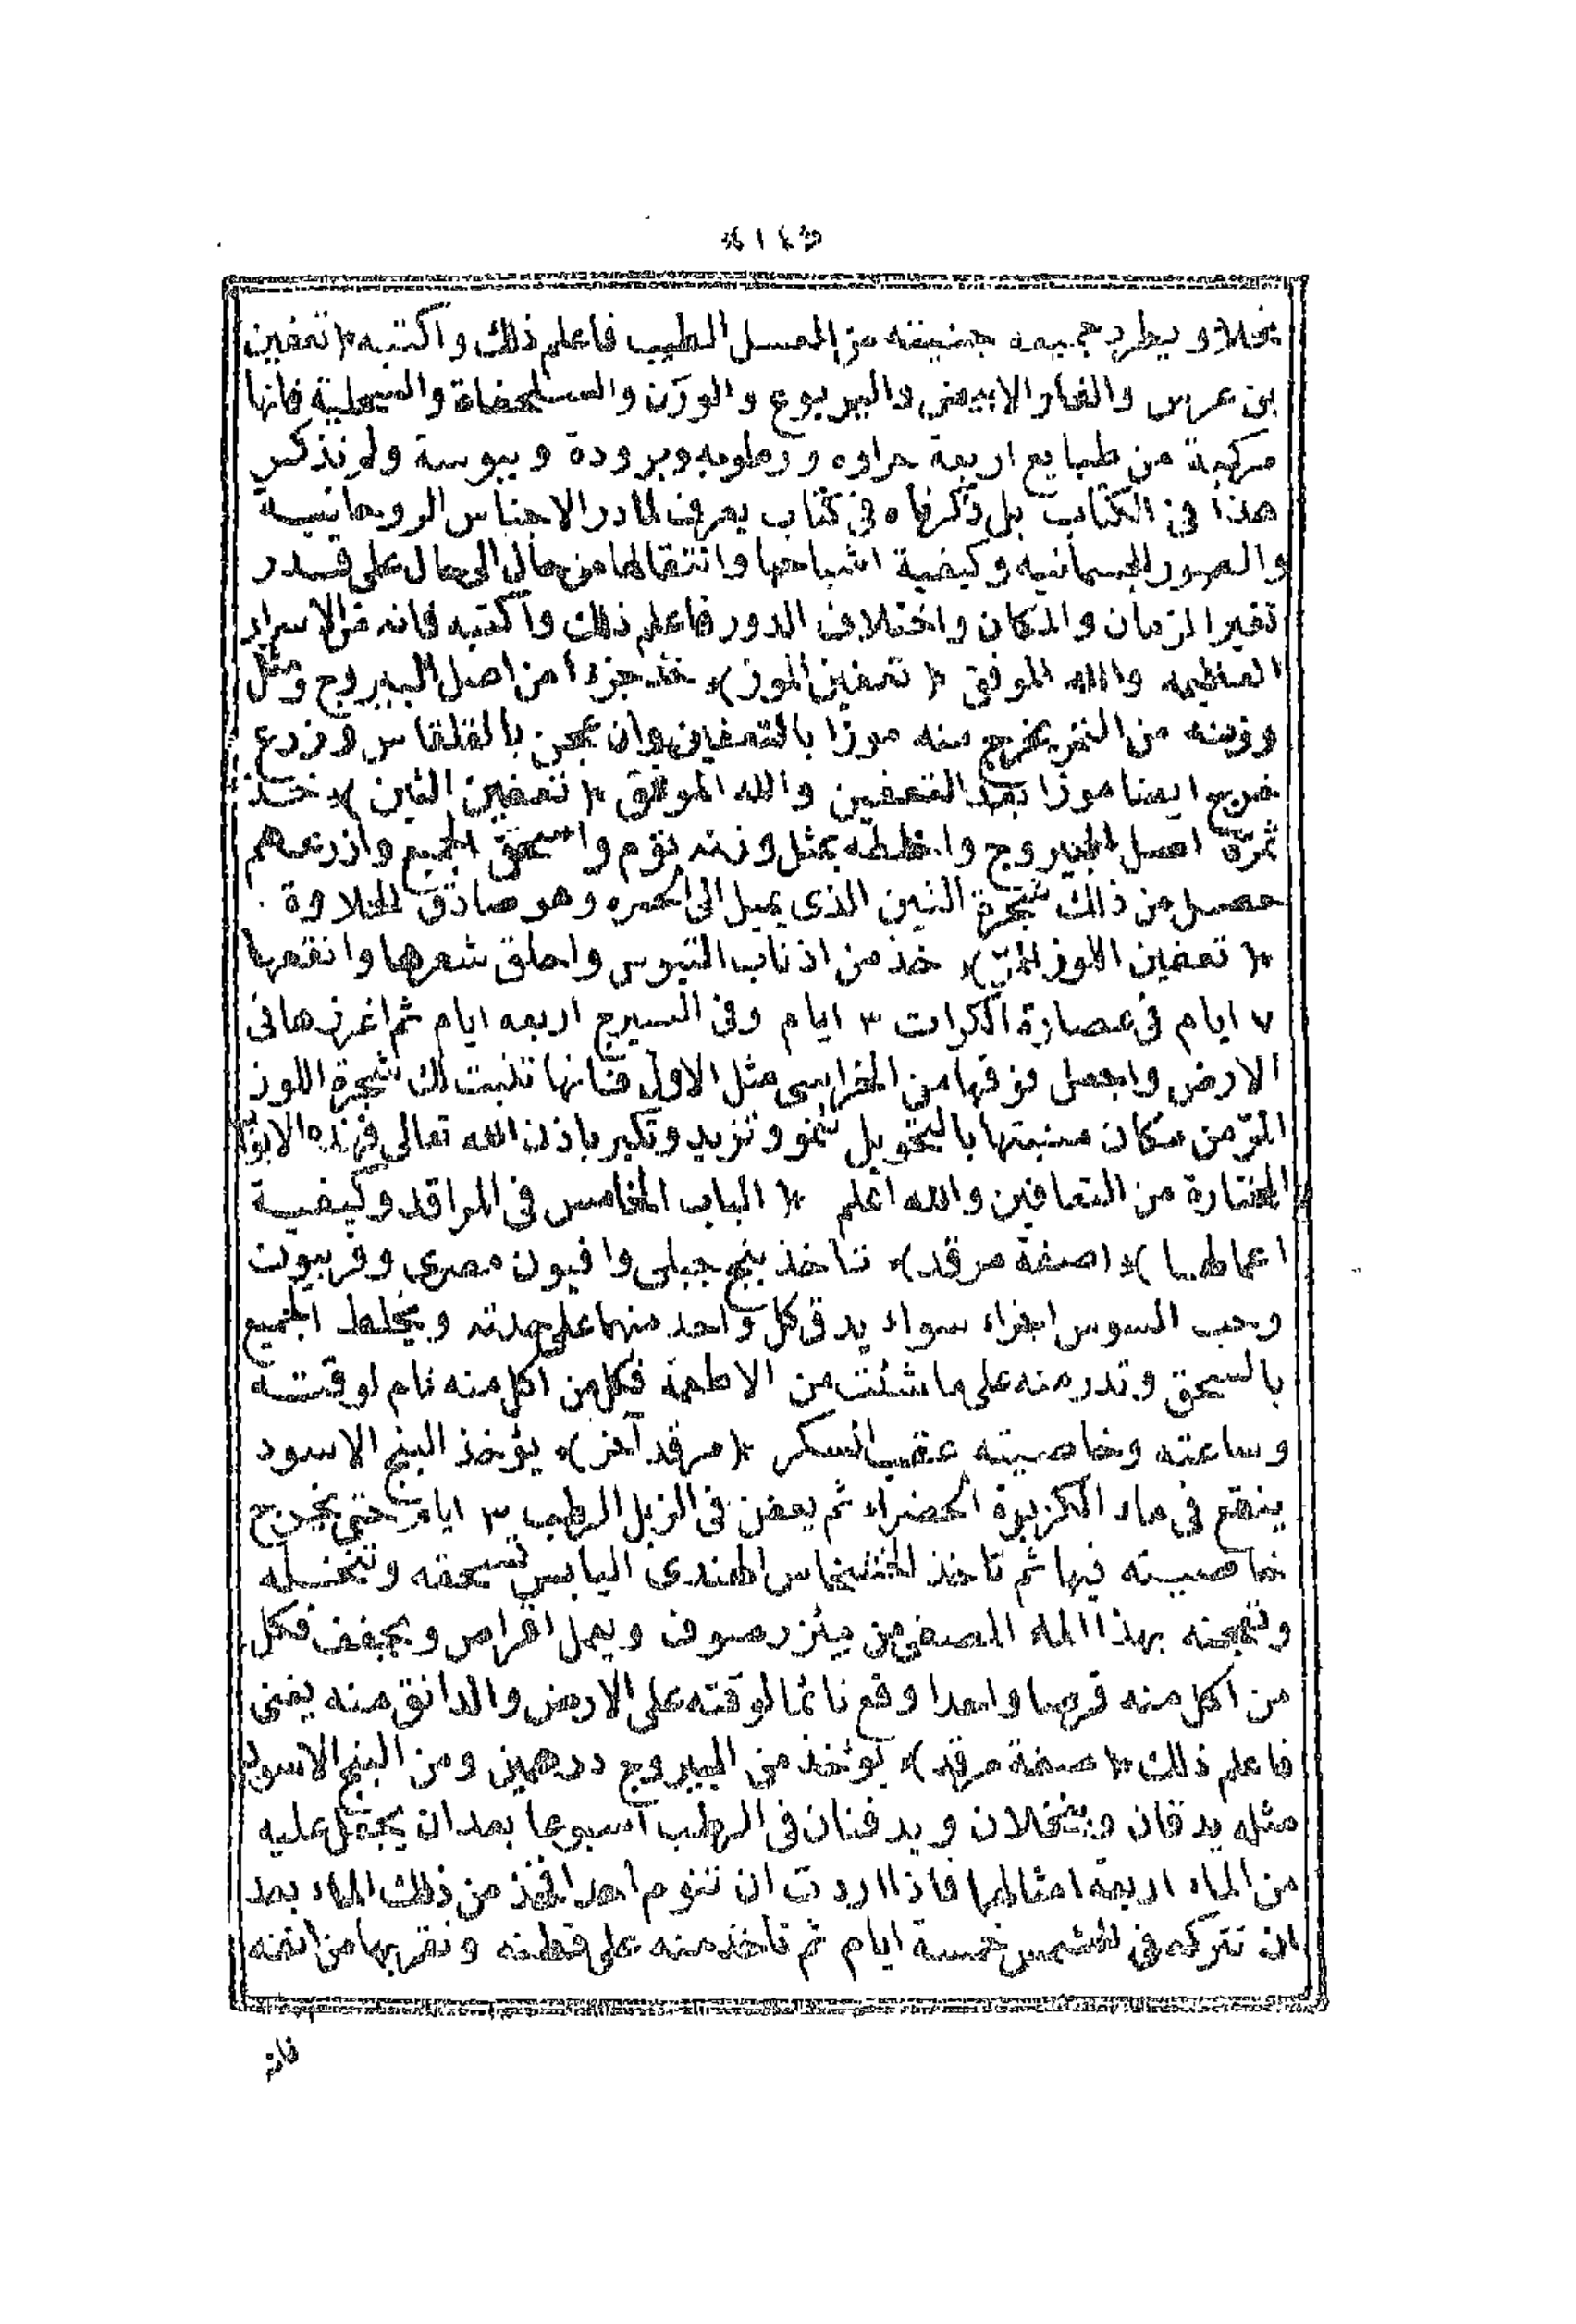 ﴿١٤﴾
نحلا و يطرد جميعه جنيته من العسل الطيب فاعلم ذلك واكتبه ﴿تعفين
بن عرس والفار الابيض واليربوع والورن والسلحفاة والسحلية فانها
مركبة من طبايع اربعة حراوه ورطوبه وبرودة ويبوسة ولم نذكر
هذا فى الكتاب بل ذكرناه فى كتاب يعرف الاجناس الروحانيسة
والصور الجسمانيه وكيفية اشباحها وانتقالها من حال الى حال على قدر
تغير الزمان والمكان واختلاف الدور فاعلم ذلك واكتبه فانه من الاسرار
العظيمه والله الموفق ﴿تعفين الموز﴾ خذ جزءا من اصل اليبروج ومثل
وزنه من التمر يخرج منه موزا بالتعفين وان عجن بالقلقاس وزرع
خرج ايضا موزا بعد التعفين والله الموفق ﴿تعفين التين﴾ خذ
ثمرة اصل اليبروج واخلطه بمثل وزنه ثوم واسحق الجميع وازرعهم
حصل من ذلك شجرة التين الذى يميل الى الحمره وهو صادق الحلاوة
﴿تعفين اللوز المرّ﴾ خذ من اذناب التيوس واحلق شعرها وانقعها
٧ ايام فى عصارة الكرات ٣ ايام وفى السيرج اربعه ايام ثم اغرزها فى
الارض واجعل فوقها من الخرا سى مثل الاول فانها تنبت لك شجرة اللوز
المرّ من مكان منبتها بالتحويل تنمو وتزيد وتكبر باذن الله تعالى فهذه الابواب
المختارة من التعافين والله اعلم ﴿الباب الخامس فى المراقد وكيفية
اعماطها﴾ ﴿صفة مرقد﴾ تاخذ بنج جبلى وافيون مصرى وفربيون
وحب السوس اجزاء سواء يدق كل واحد منها على حدته ويخلط الجميع
بالسحق وتدر منه على ما شئت من الاطعمة فكل من اكل منه نام لوقته
وساعته وخاصيته عقب السكر ﴿مرقد آخر﴾ يؤخذ البنج الاسود
ينقع فى ماء الكزبرة الخضراء ثم يعفن فى الزبل الرطب ٣ ايام حتى يخرج
خاصيته فيها ثم تاخذ الخشخاس الهندى اليابس تسحقه وتنخله
وتعجنه بهذا الماء المصفى من ميئزر صوف ويعمل اقراص ويجفف فكل
من اكل منه قرصا واحدا وقع نائما لوقته على الارض والدانق منه يغنى
فاعلم ذلك ﴿صفة مرقد﴾ يؤخذ من اليبروج درهمين ومن البنج الاسود
مثله يدقان وينخلان ويدفنان فى الرطب اسبوعا بعد ان يجعل عليه
من الماء اربعة امثالهما فاذا اردت ان تنوم احدا فخذ من ذلك الماء بعد
ان تتركه فى الشمس خمسة ايام ثم تاخذ منه على قطنه وتقربها من انفه
فانه